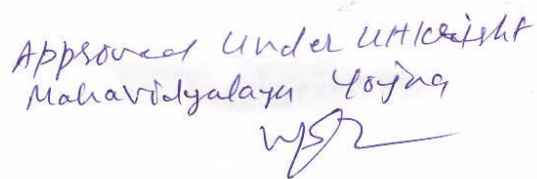 Approved Under Utkrisht
Mahavidyalaya Yojna